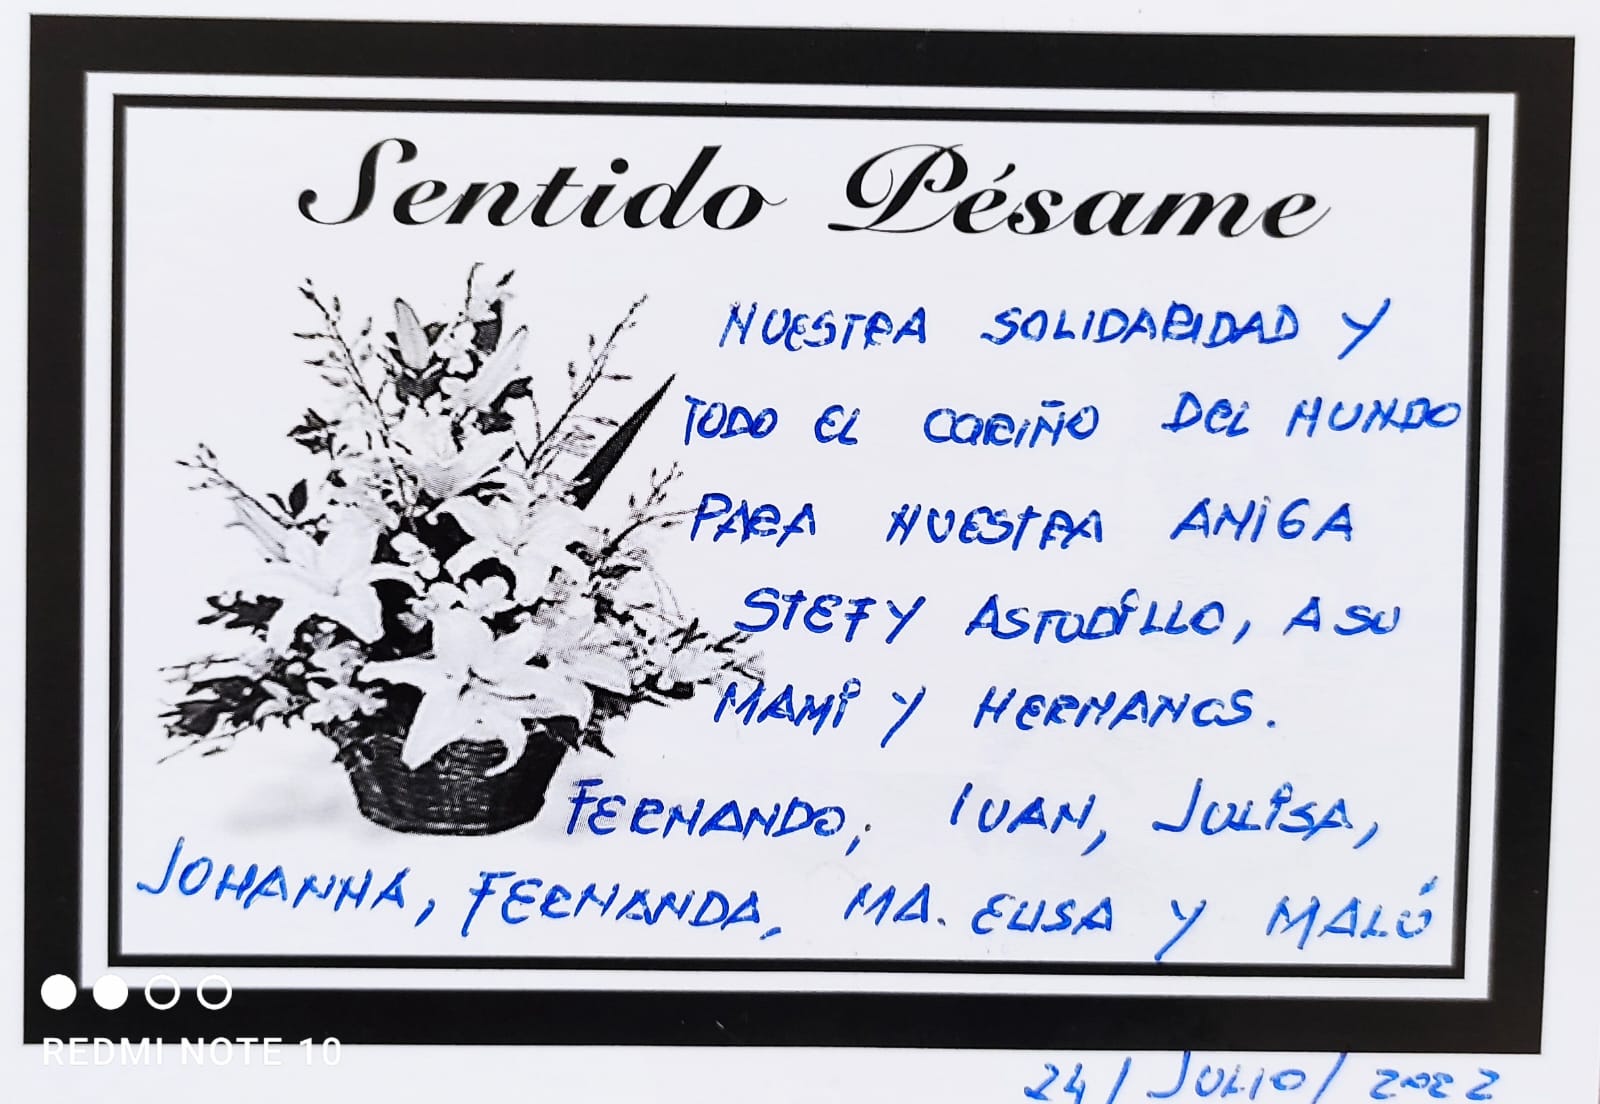 Sentido Pésame
NUESTRA SOLIDARIDAD Y
TODO EL CARIÑO DEL MUNDO
PARA NUESTRA AMIGA
STEFY ASTUDILLO, A SU
MAMI Y HERMANOS.
FERNANDO, IVAN, JULISA,
JOHANNA, FERNANDA, MA. ELISA Y MALÚ
REDMI NOTE 10
24/JULIO/2022